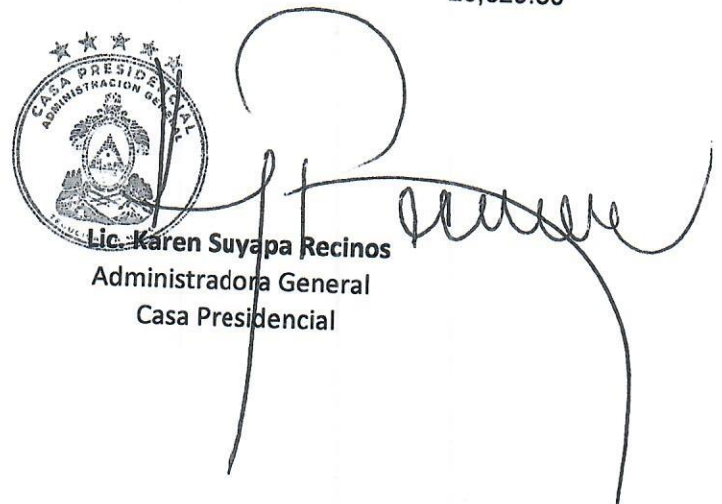 CASA PRESIDENCIAL
ADMINISTRACION GENERAL
Lic. Karen Suyapa Recinos
Administradora General
Casa Presidencial